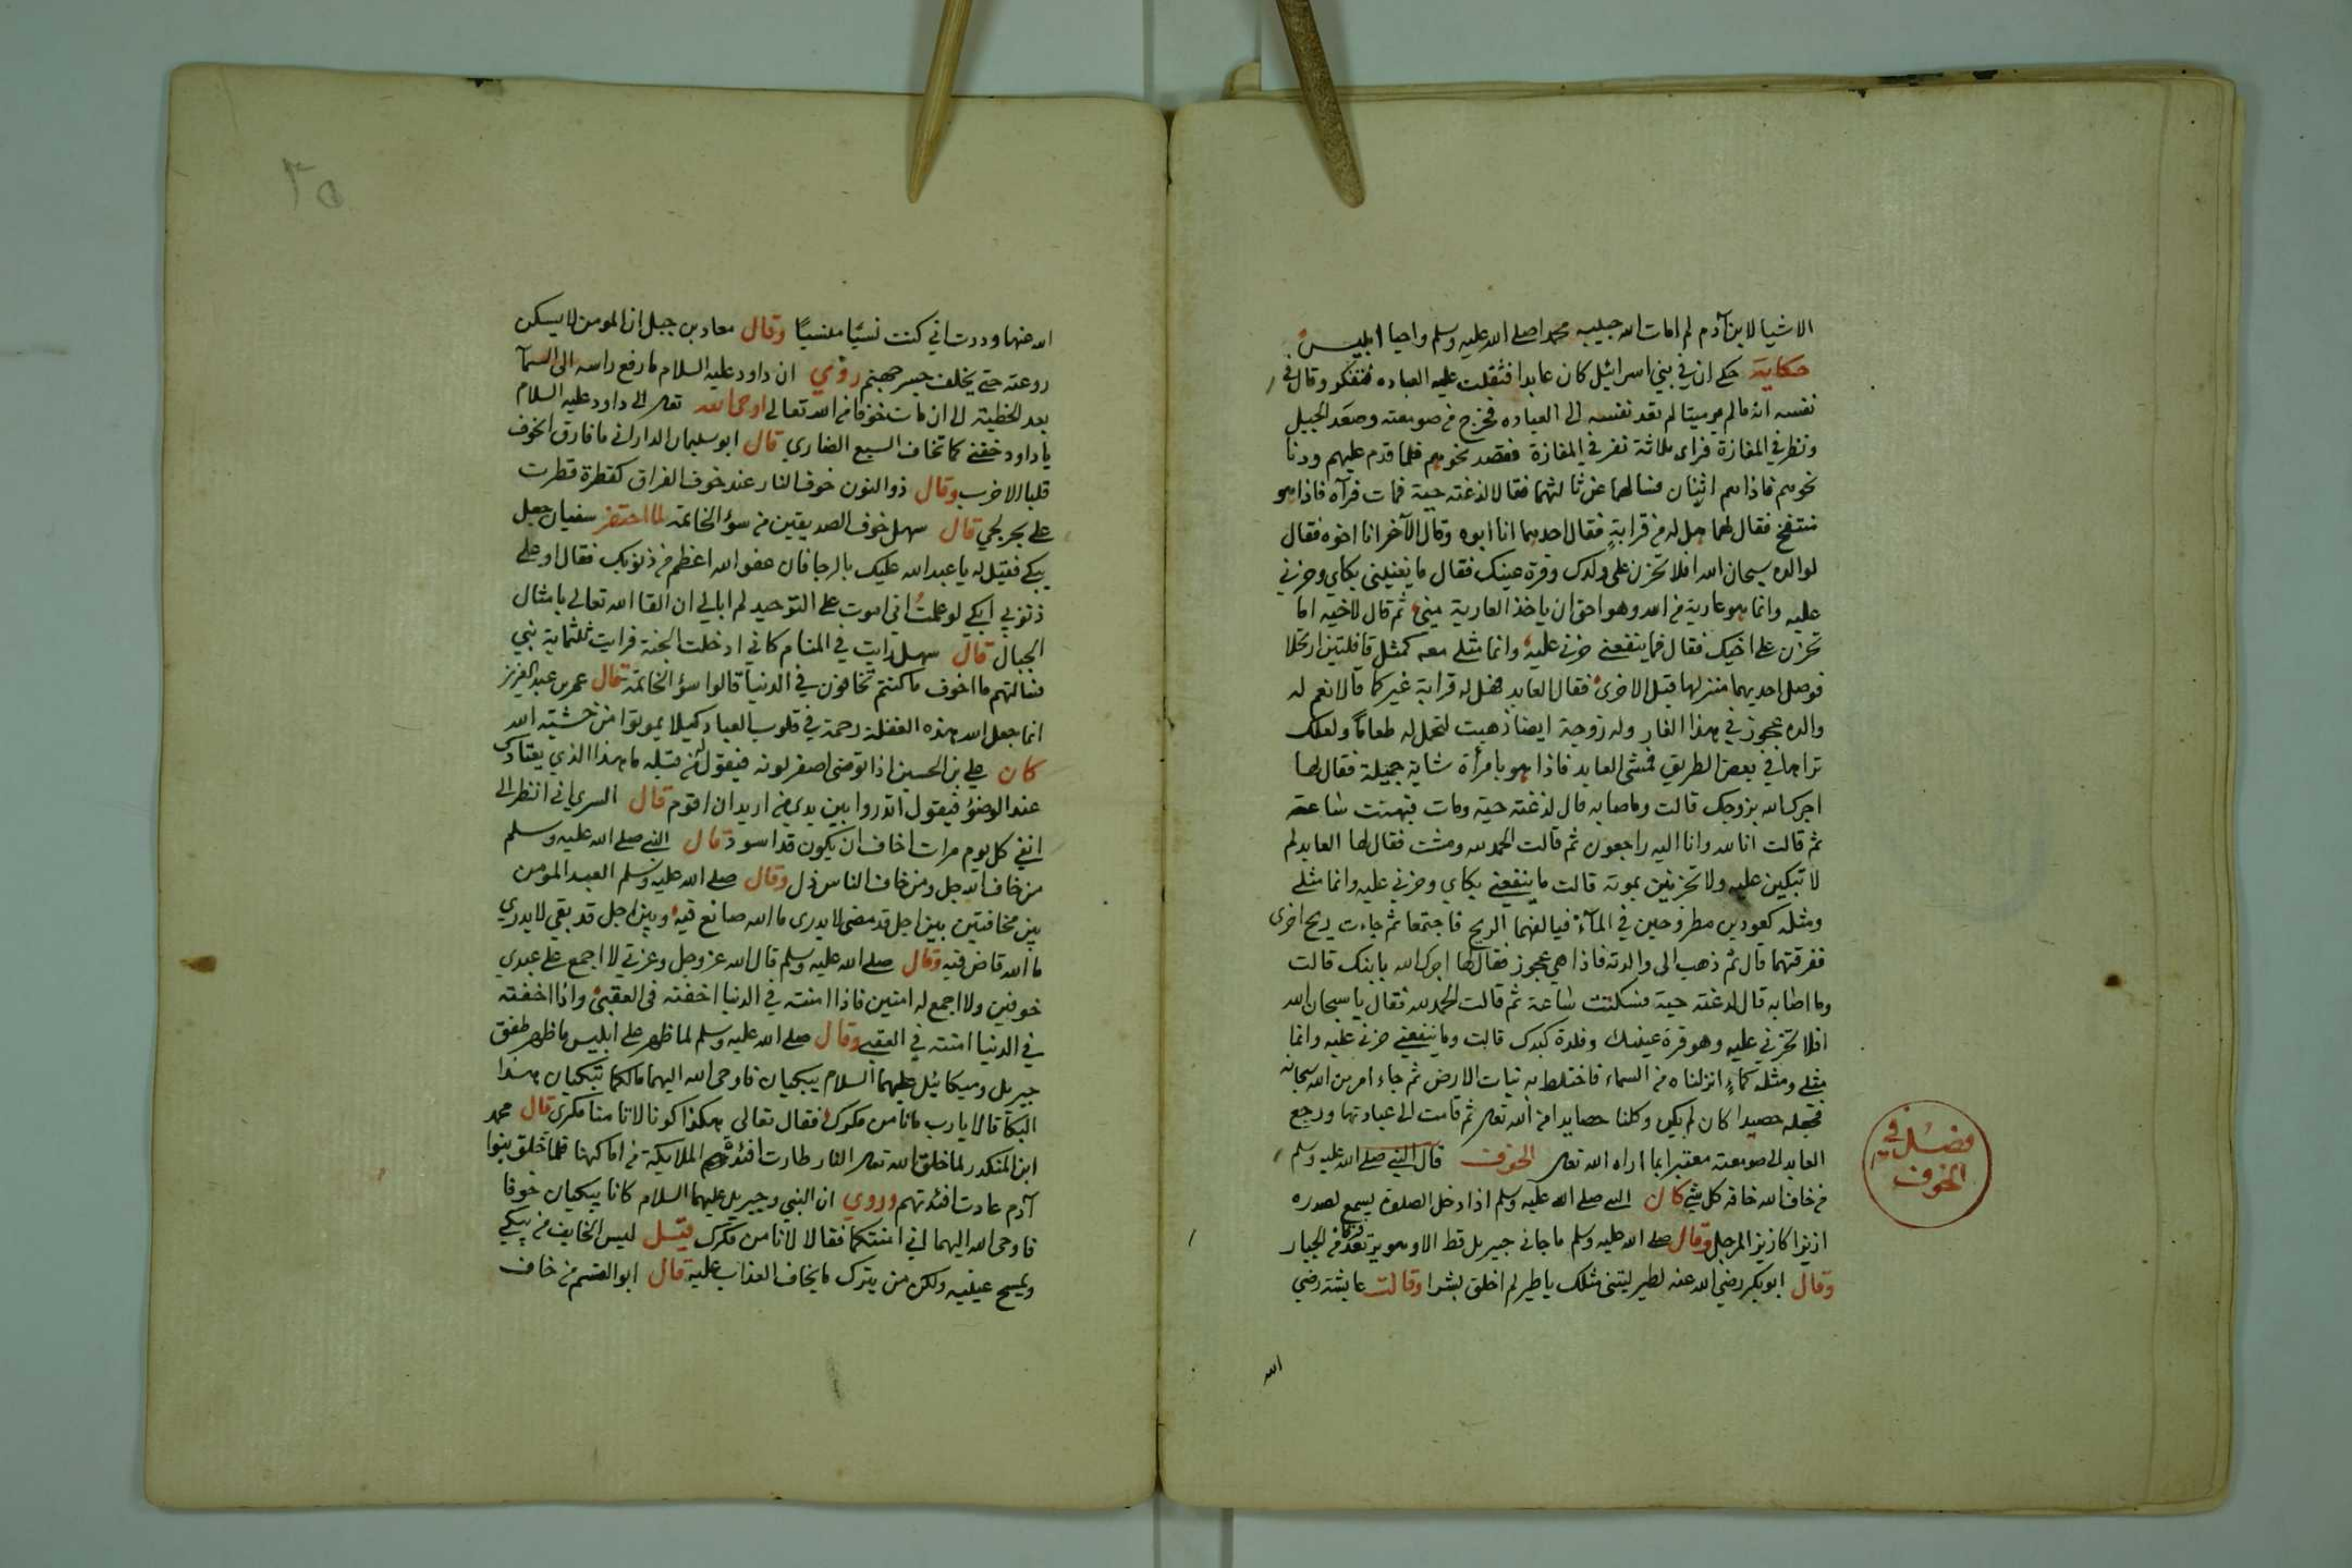 الاشيا لابن آدم لم امات الله حبيبه محمدا صلى الله عليه وسلم واحيا ابليس
حكاية حكى ان في بني اسرائيل كان عابدا فثقلت عليه العباده فتفكر وقال في
نفسه انه ما لم ير ميتا لم يعد نفسه الى العباده فخرج من صومعته وصعد الجبل
ونظر في المفازة فراى ثلاثة نفر في المفازة فقصد نحوهم فلما قدم عليهم ودنا
نحوهم فاذا هم اثنان فسالهما عن ثالثهما فقالا لذغته حية فمات فرآه فاذا هو
منتفخ فقال لهما هل له من قرابة فقال احدهما انا ابوه وقال الآخر انا اخوه فقال
لوالده سبحان الله افلا تحزن على ولدك وقرة عينك فقال ما يغنيني بكاي وحزني
عليه وانما هو عارية من الله وهو احق ان ياخذ العارية مني ثم قال لاخيه اما
تحزن على اخيك فقال فما ينفعني حزني عليه وانما مثلي معه كمثل قافلتين ارتحلا
فوصل احديهما منزلها قبل الاخرى فقال العابد هل له قرابة غيركما قالا نعم له
والده عجوز في هذا الغار وله زوجة ايضا ذهبت لتحمل له طعاما ولعلك
تراها في بعض الطريق فمشى العابد فاذا هو بامرأة شابة جميلة فقال لها
اجرك الله بزوجك قالت وما صابه قال لذغته حية ومات فبهتت ساعة
ثم قالت انا لله وانا اليه راجعون ثم قالت الحمد لله ومشت فقال لها العابد لم
لا تبكين عليه ولا تحزنين بموته قالت ما ينفعني بكاي وحزني عليه وانما مثلي
ومثله كعودين مطروحين في المآء فيالفهما الريح فاجتمعا ثم جاءت ريح اخرى
ففرقتهما قال ثم ذهب الى والدته فاذا هي عجوز فقال لها اجرك الله بابنك قالت
وما اصابه قال لدغته حية فسكتت ساعة ثم قالت الحمد لله فقال يا سبحان الله
افلا تحزني عليه وهو قرة عينك وفلدة كبدك قالت وما ينفعني حزني عليه وانما
مثلي ومثله كماء انزلناه من السماء فاختلط به نبات الارض ثم جاء امر من الله سبحانه
فجعله حصيدا كان لم يكن وكلنا حصايد امر الله تعم ثم قامت الى عبادتها ورجع
العابد الى صومعته معتبرا بما اراه الله تعم الخوف قال النبي صلى الله عليه وسلم
من خاف الله خافه كل شي كان النبي صلى الله عليه وسلم اذا دخل الصلوة يسمع لصدره
ازيزا كازيز المرجل وقال صلى الله عليه وسلم ما جاني جبريل قط الا وهو يرتعد فرقا من الجبار
وقال ابو بكر رضي الله عنه لطير ليتني مثلك يا طير لم اخلق بشرا وقالت عايشة رضي
الله
فصل في
الخوف
٣٥
الله عنها وددت اني كنت نسيا منسيا وقال معاد بن جبل ان المومن لا يسكن
روعته حتى يخلف جسر جهنم روي ان داود عليه السلام ما رفع راسه الى السمآ
بعد الخطية الى ان مات خوفا من الله تعالى اوحى الله تعم الى داود عليه السلام
يا داود خفني كما تخاف السبع الضاري قال ابو سليمان الداراني ما فارق الخوف
قلبا الا خرب وقال ذو النون خوف النار عند خوف الفراق كقطرة قطرت
على بحر لجي قال سهل خوف الصديقين من سؤ الخاتمة لما احتضر سفيان جعل
يبكي فقيل له يا عبد الله عليك بالرجا فان عفو الله اعظم من ذنوبك فقال او على
ذنوبي ابكي لو علمت اني اموت على التوحيد لم ابالي ان القا الله تعالى بامثال
الجبال قال سهل رايت في المنام كاني ادخلت الجنة فرايت ثلثماية نبي
فسالتهم ما اخوف ما كنتم تخافون في الدنيا قالوا سؤ الخاتمة قال عمر بن عبد العزيز
انما جعل الله هذه الغفلة رحمة في قلوب العباد كيلا يموتوا من خشية الله
كان علي بن الحسين اذا توضى اصفر لونه فيقول له من قبله ما هذا الذي يعتادك
عند الوضؤ فيقول اتدروا بين يدي من اريد ان اقوم قال السري اني انظر الى
انفي كل يوم مرات اخاف ان يكون قد اسود قال النبي صلى الله عليه وسلم
من خاف الله جل ومن خاف الناس ذل وقال صلى الله عليه وسلم العبد المومن
بين مخافتين بين اجل قد مضى لا يدرى ما الله صانع فيه وبين اجل قد بقي لا يدري
ما الله قاض فيه وقال صلى الله عليه وسلم قال الله عز وجل وعزتي لا اجمع على عبدي
خوفين ولا اجمع له امنين فاذا امنته في الدنيا اخفته في العقبى واذا اخفته
في الدنيا امنته في العقبى وقال صلى الله عليه وسلم لما ظهر على ابليس ما ظهر طفق
جبريل وميكائيل عليهما السلام يبكيان فاوحى الله اليهما مالكما تبكيان هذا
البكآ قالا يا رب ما نامن مكرك فقال تعالى هكذا كونا لا تامنا مكري قال محمد
ابن المنكدر لما خلق الله تعم النار طارت افئدة الملايكة من اماكنها فلما خلق بنوا
آدم عادت افئدتهم وروي ان النبي وجبريل عليهما السلام كانا يبكيان خوفا
فاوحى الله اليهما اني امنتكما فقالا لا نامن مكرك قيل ليس الخايف من يبكي
ويمسح عينيه ولكن من يترك ما يخاف العذاب عليه قال ابو القسم من خاف